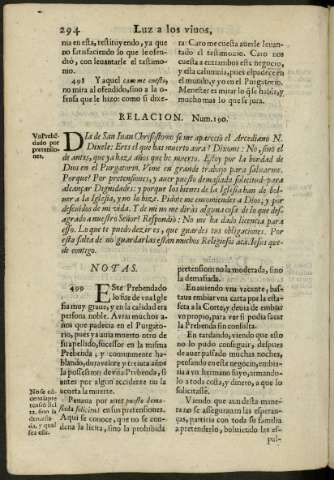 294 Luz a los viuos,
ma en esta, restituyendo, ya que
no satisfaciendo lo que le ofen-
dió, con leuantarle el testimo-
nio.
498 Y aquel caro me cuesta,
no mira al ofendido, sino a la o-
fensa que le hizo: como si dixe-
ra: Caro me cuesta auerle leuan-
tado el testimonio. Caro nos
cuesta a entrambos este negocio,
y esta calumnia, pues el padece en
el mundo, y yo en el Purgatorio.
Menester es mirar lo q̃ se habla, y
mucho mas lo que se jura.
RELACION. Num. 190.
Vn Prebẽ-
dado por
pretensio-
nes.
DIa de San Iuan Chrisostomo se me apareciò el Arcediano N.
Dixele: Eres el que has muerto aora? Dixome: No, sino el
de antes, que ya haze años que he muerto. Estoy por la bondad de
Dios en el Purgatorio. Vine en grande trabajo para saluarme.
Porque? Por pretensiones, y auer puesto demasiada solicitud para
alcançar Dignidades: y porque los bienes de la Iglesia han de bol-
uer a la Iglesia, y no lo hize. Pidote me encomiendes a Dios, y por
descuidos de mi vida. Y de mi no me diràs alguna cosa de lo que des-
agrado a nuestro Señor? Respondio: No me ha dado licencia para
esso. Lo que te puedo dezir es, que guardes tus obligaciones. Por
esta falta de no guardarlas están muchos Religiosos acà. Iesus que-
de contigo.
NOTAS.
499 ESte Prebendado
lo fue de vna Igle
sia muy graue, y en la calidad era
persona noble. Auia muchos a-
ños que padecia en el Purgato-
rio, pues ya auia muerto otro de
su apellido, sucessor en la misma
Prebenda, y comunmente ha-
blando, dura veinte y treinta años
la possession de vna Prebenda, si
antes por algun accidente no la
vacata la muerte.
Penaua por auer puesto dema-
siada solicitud en sus pretensiones.
Aqui se conoce, que no se con-
dena la licita, sino la prohibida
pretension: no la moderada, sino
la demasiada.
En auiendo vna vacante, bas-
taua embiar vna carta por la esta-
feta a la Corte, y deuia de embiar
vn propio, para ver si podia sacar
la Prebenda sin consulta.
En tardando, viendo que esto
no lo pudo conseguir, despues
de auer passado muchas noches,
pensando en este negocio, embia-
ria a vn hermano suyo, tomando-
lo a toda costa, y dinero, a que lo
solicitasse.
Viendo que aun desta mane-
ra no se assegurauan las esperan-
ças, partiria con toda su familia
a pretenderlo, boluiendo las es-
pal-